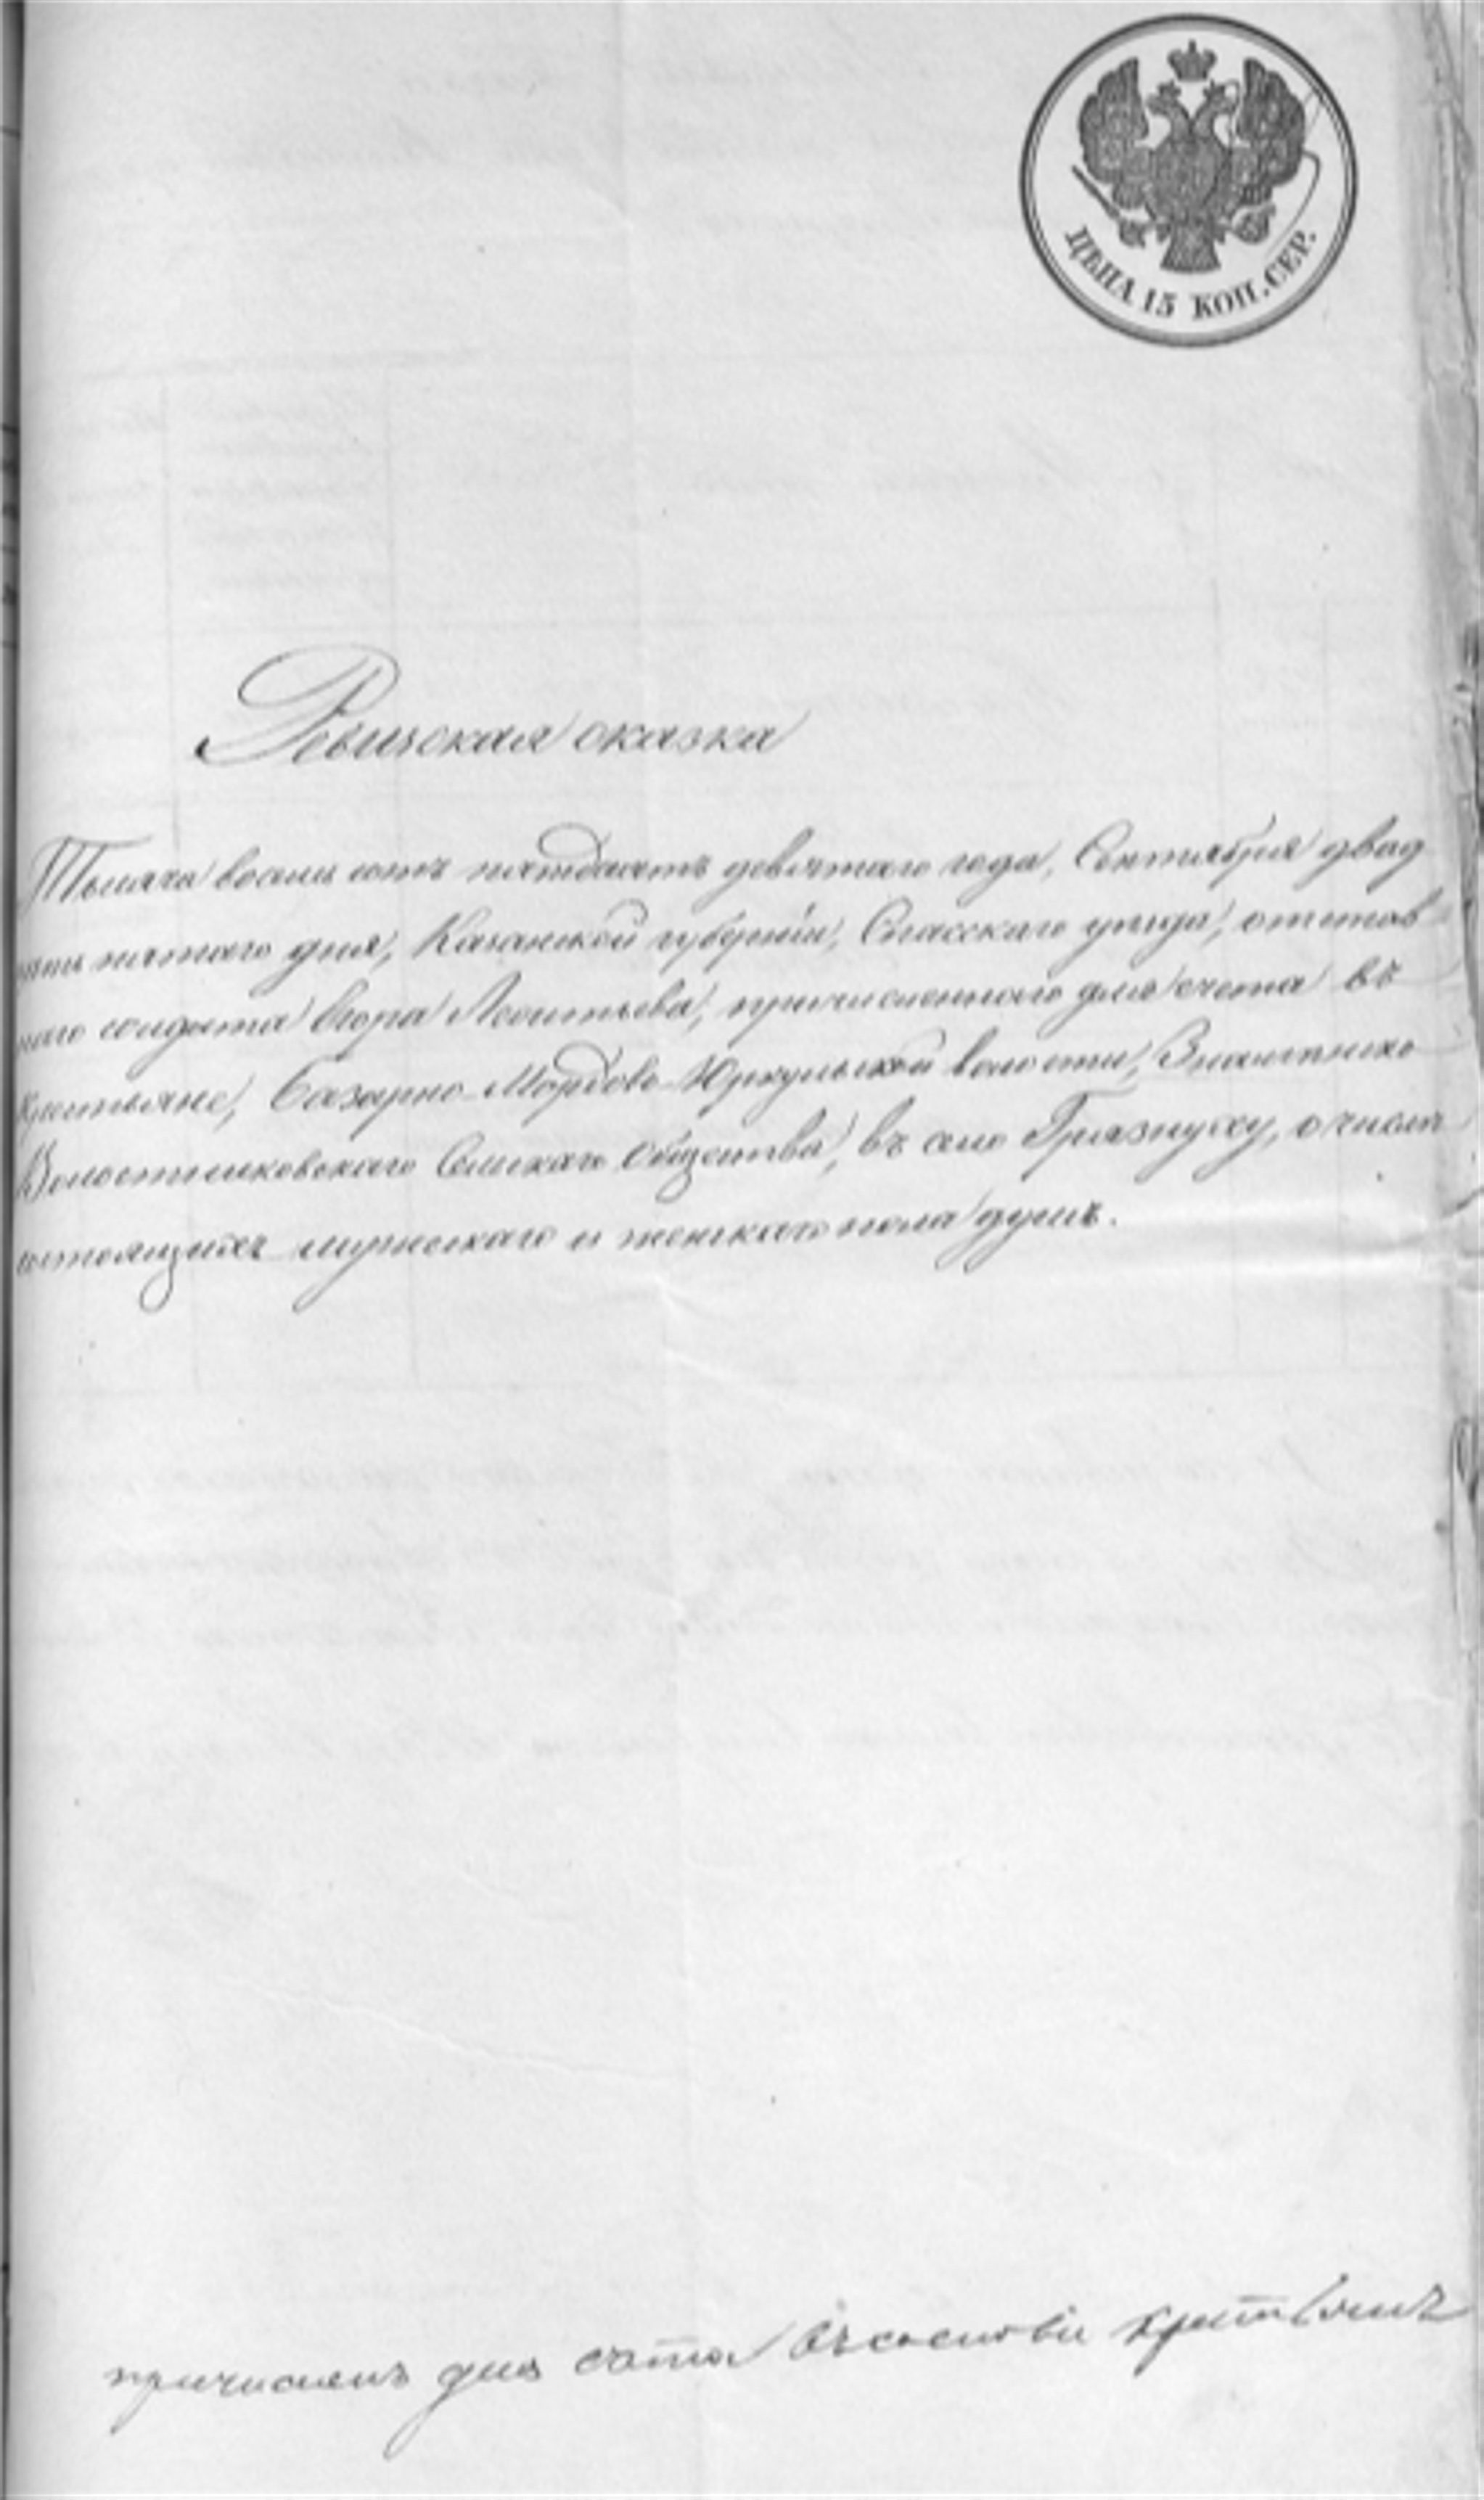 ЦѢНА 15 КОП. СЕР.
Ревизская сказка
Тысяча восемь сотъ пятдесятъ девятаго года, Сентября двад
цать пятаго дня, Казанской губерніи, Спасскаго уѣзда, отстав
наго солдата Егора Леонтьева, причисленнаго для счета въ
крестьяне, Базарно-Мордово-Юркульской волости,
Волостниковскаго Сельскаго Общества, въ село Грязнуху, о числѣ
состоящихъ мужескаго и женскаго пола душъ.
причисленъ для счота въ сословіе крестьянъ